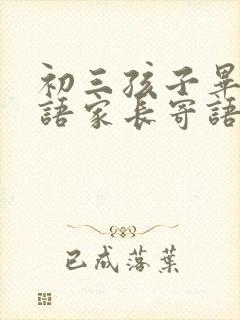 初三孩子畢
語家長寄語
已成落葉